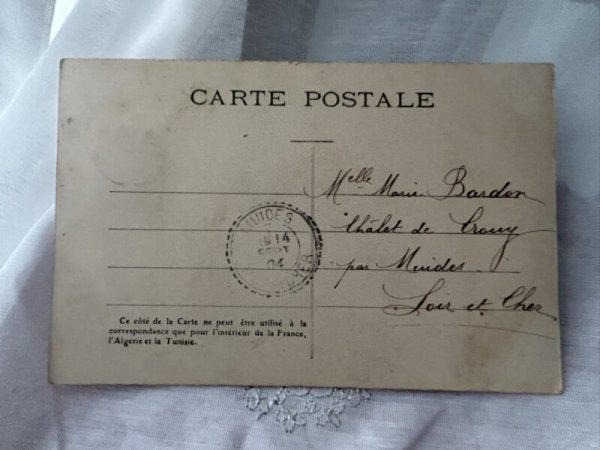 CARTE POSTALE
Melle Marie Bardon
Châlet de Crouy
par Muides
Loir et Cher
MUIDES
14
SEPT
04
CHER
Ce côté de la Carte ne peut être utilisé à la
correspondance que pour l'intérieur de la France,
l'Algérie et la Tunisie.